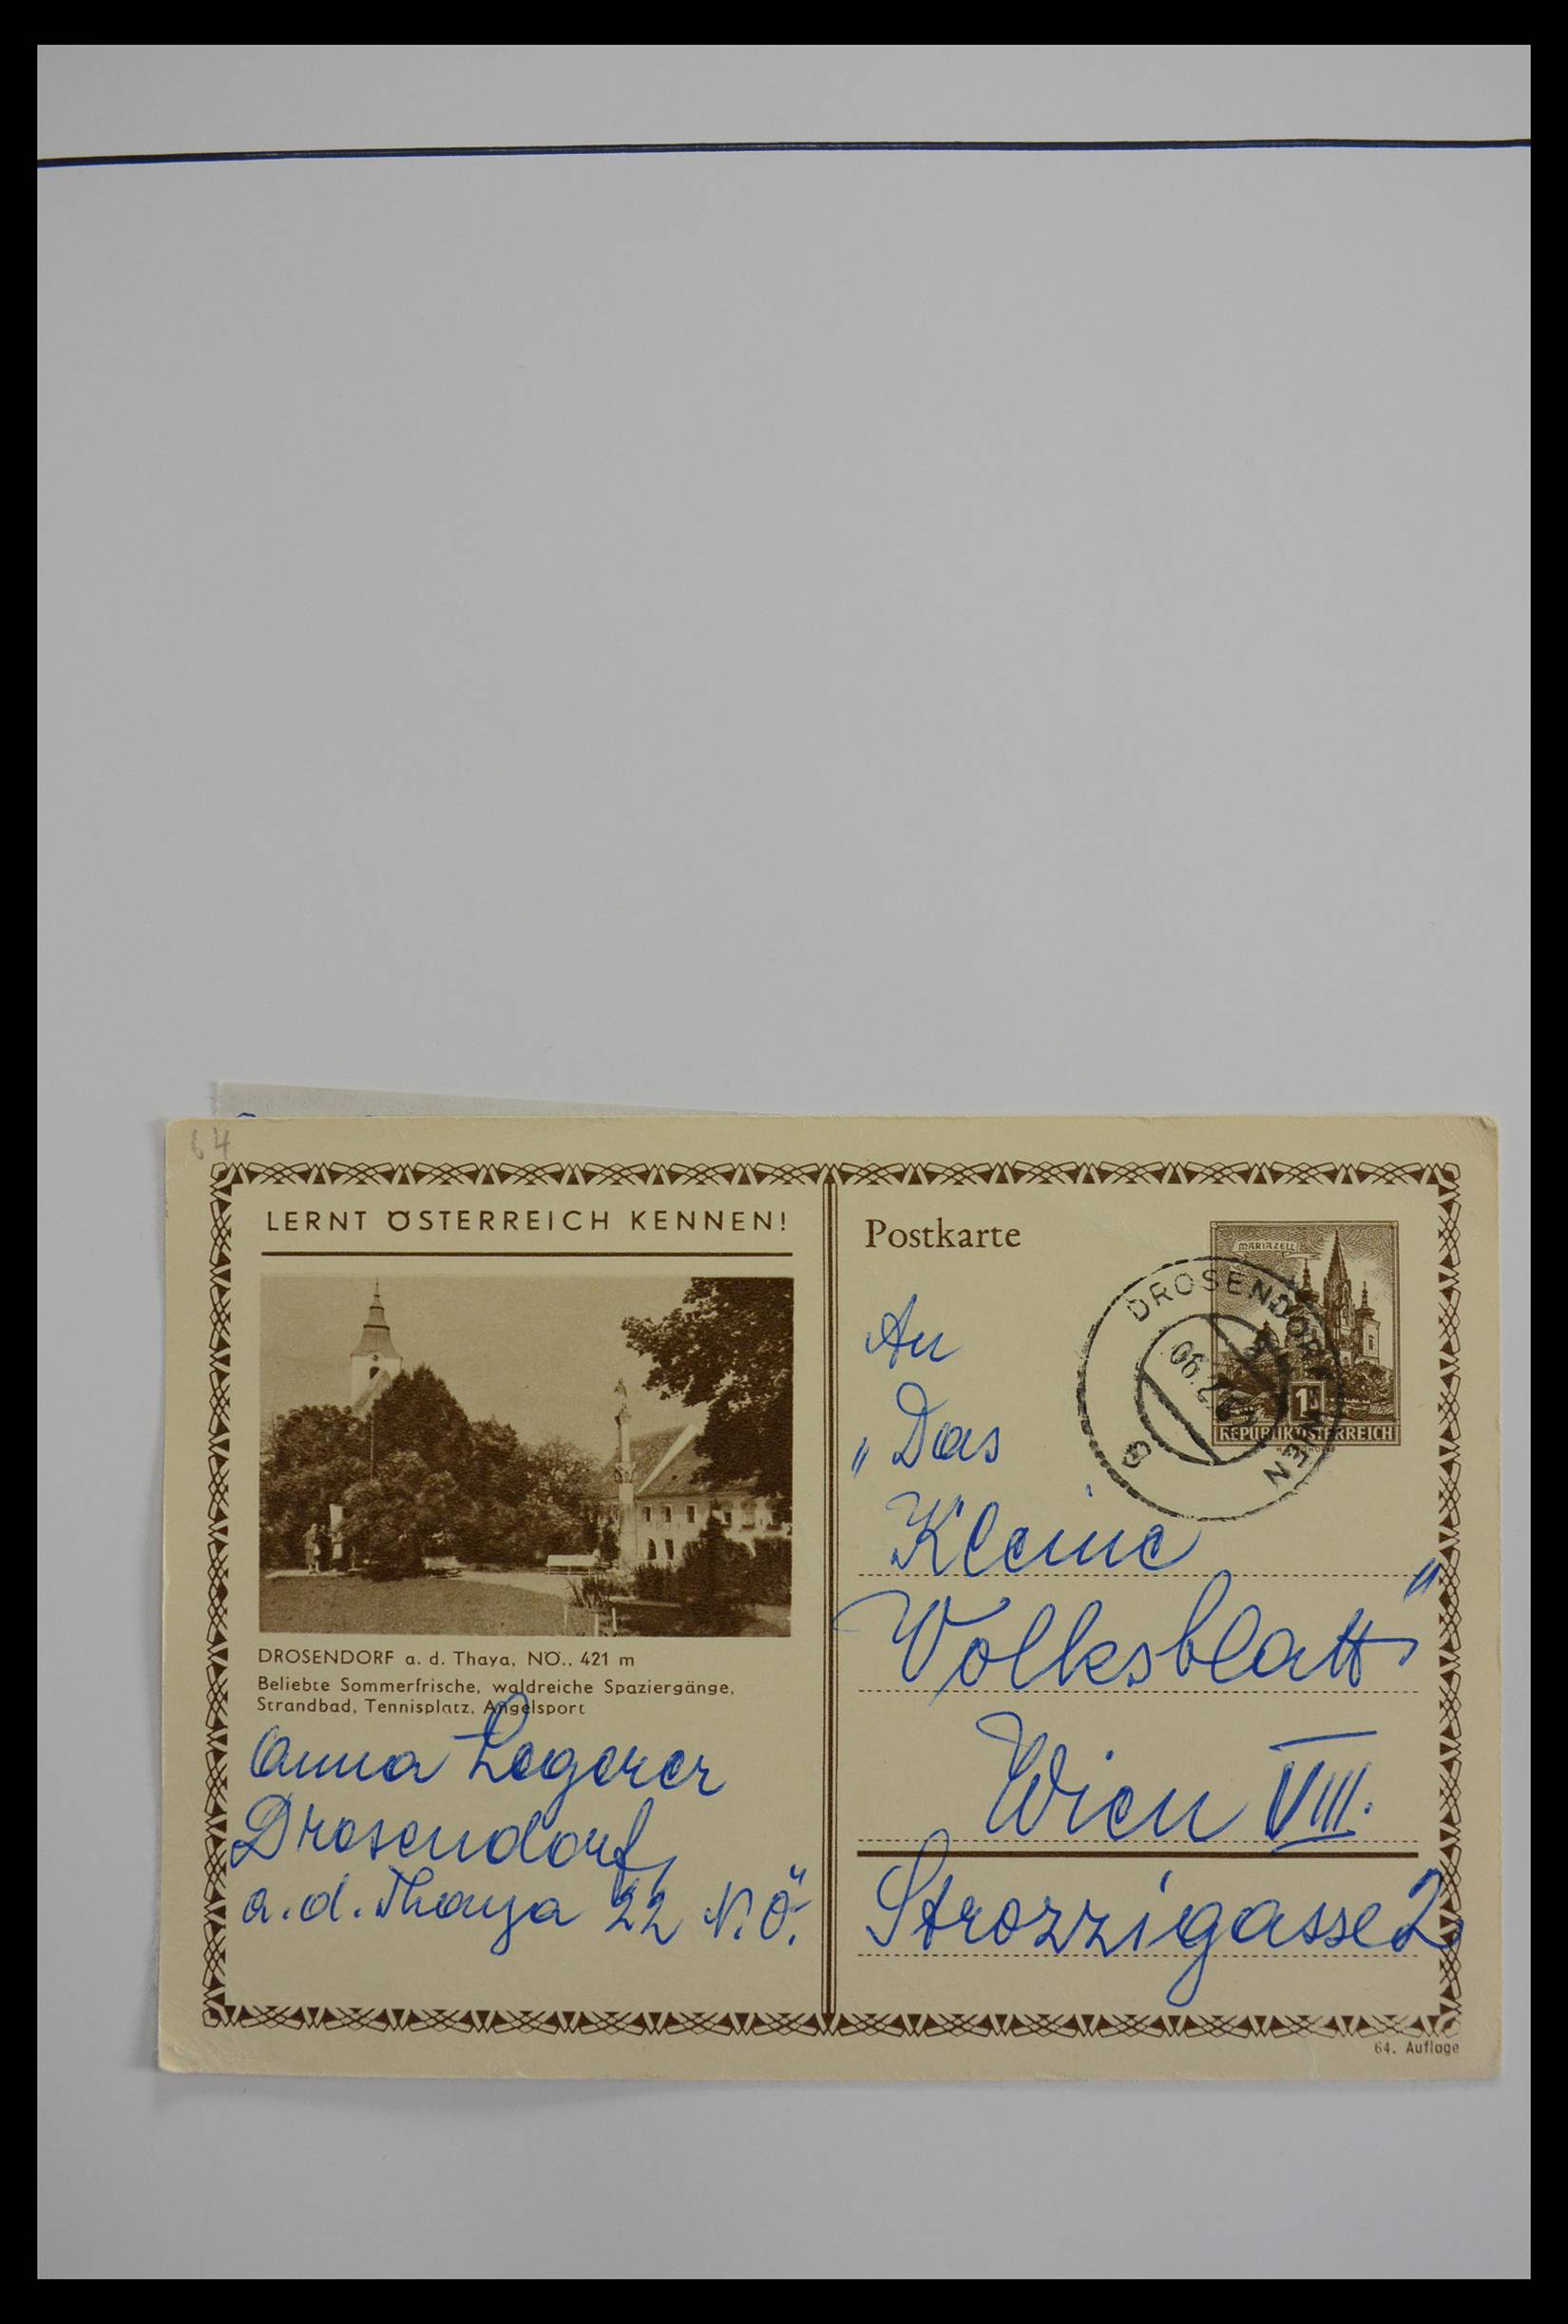 64
LERNT ÖSTERREICH KENNEN!
DROSENDORF a. d. Thaya, NÖ., 421 m
Beliebte Sommerfrische, waldreiche Spaziergänge,
Strandbad, Tennisplatz, Angelsport
Anna Legerer
Drosendorf,
a. d. Thaya 22 N.Ö.
Postkarte
MARIAZELL
1
REPUBLIK ÖSTERREICH
DROSENDORF
06.
G
An
„Das
Kleine
Volksblatt"
Wien VIII.
Strozzigasse 2
64. Auflage